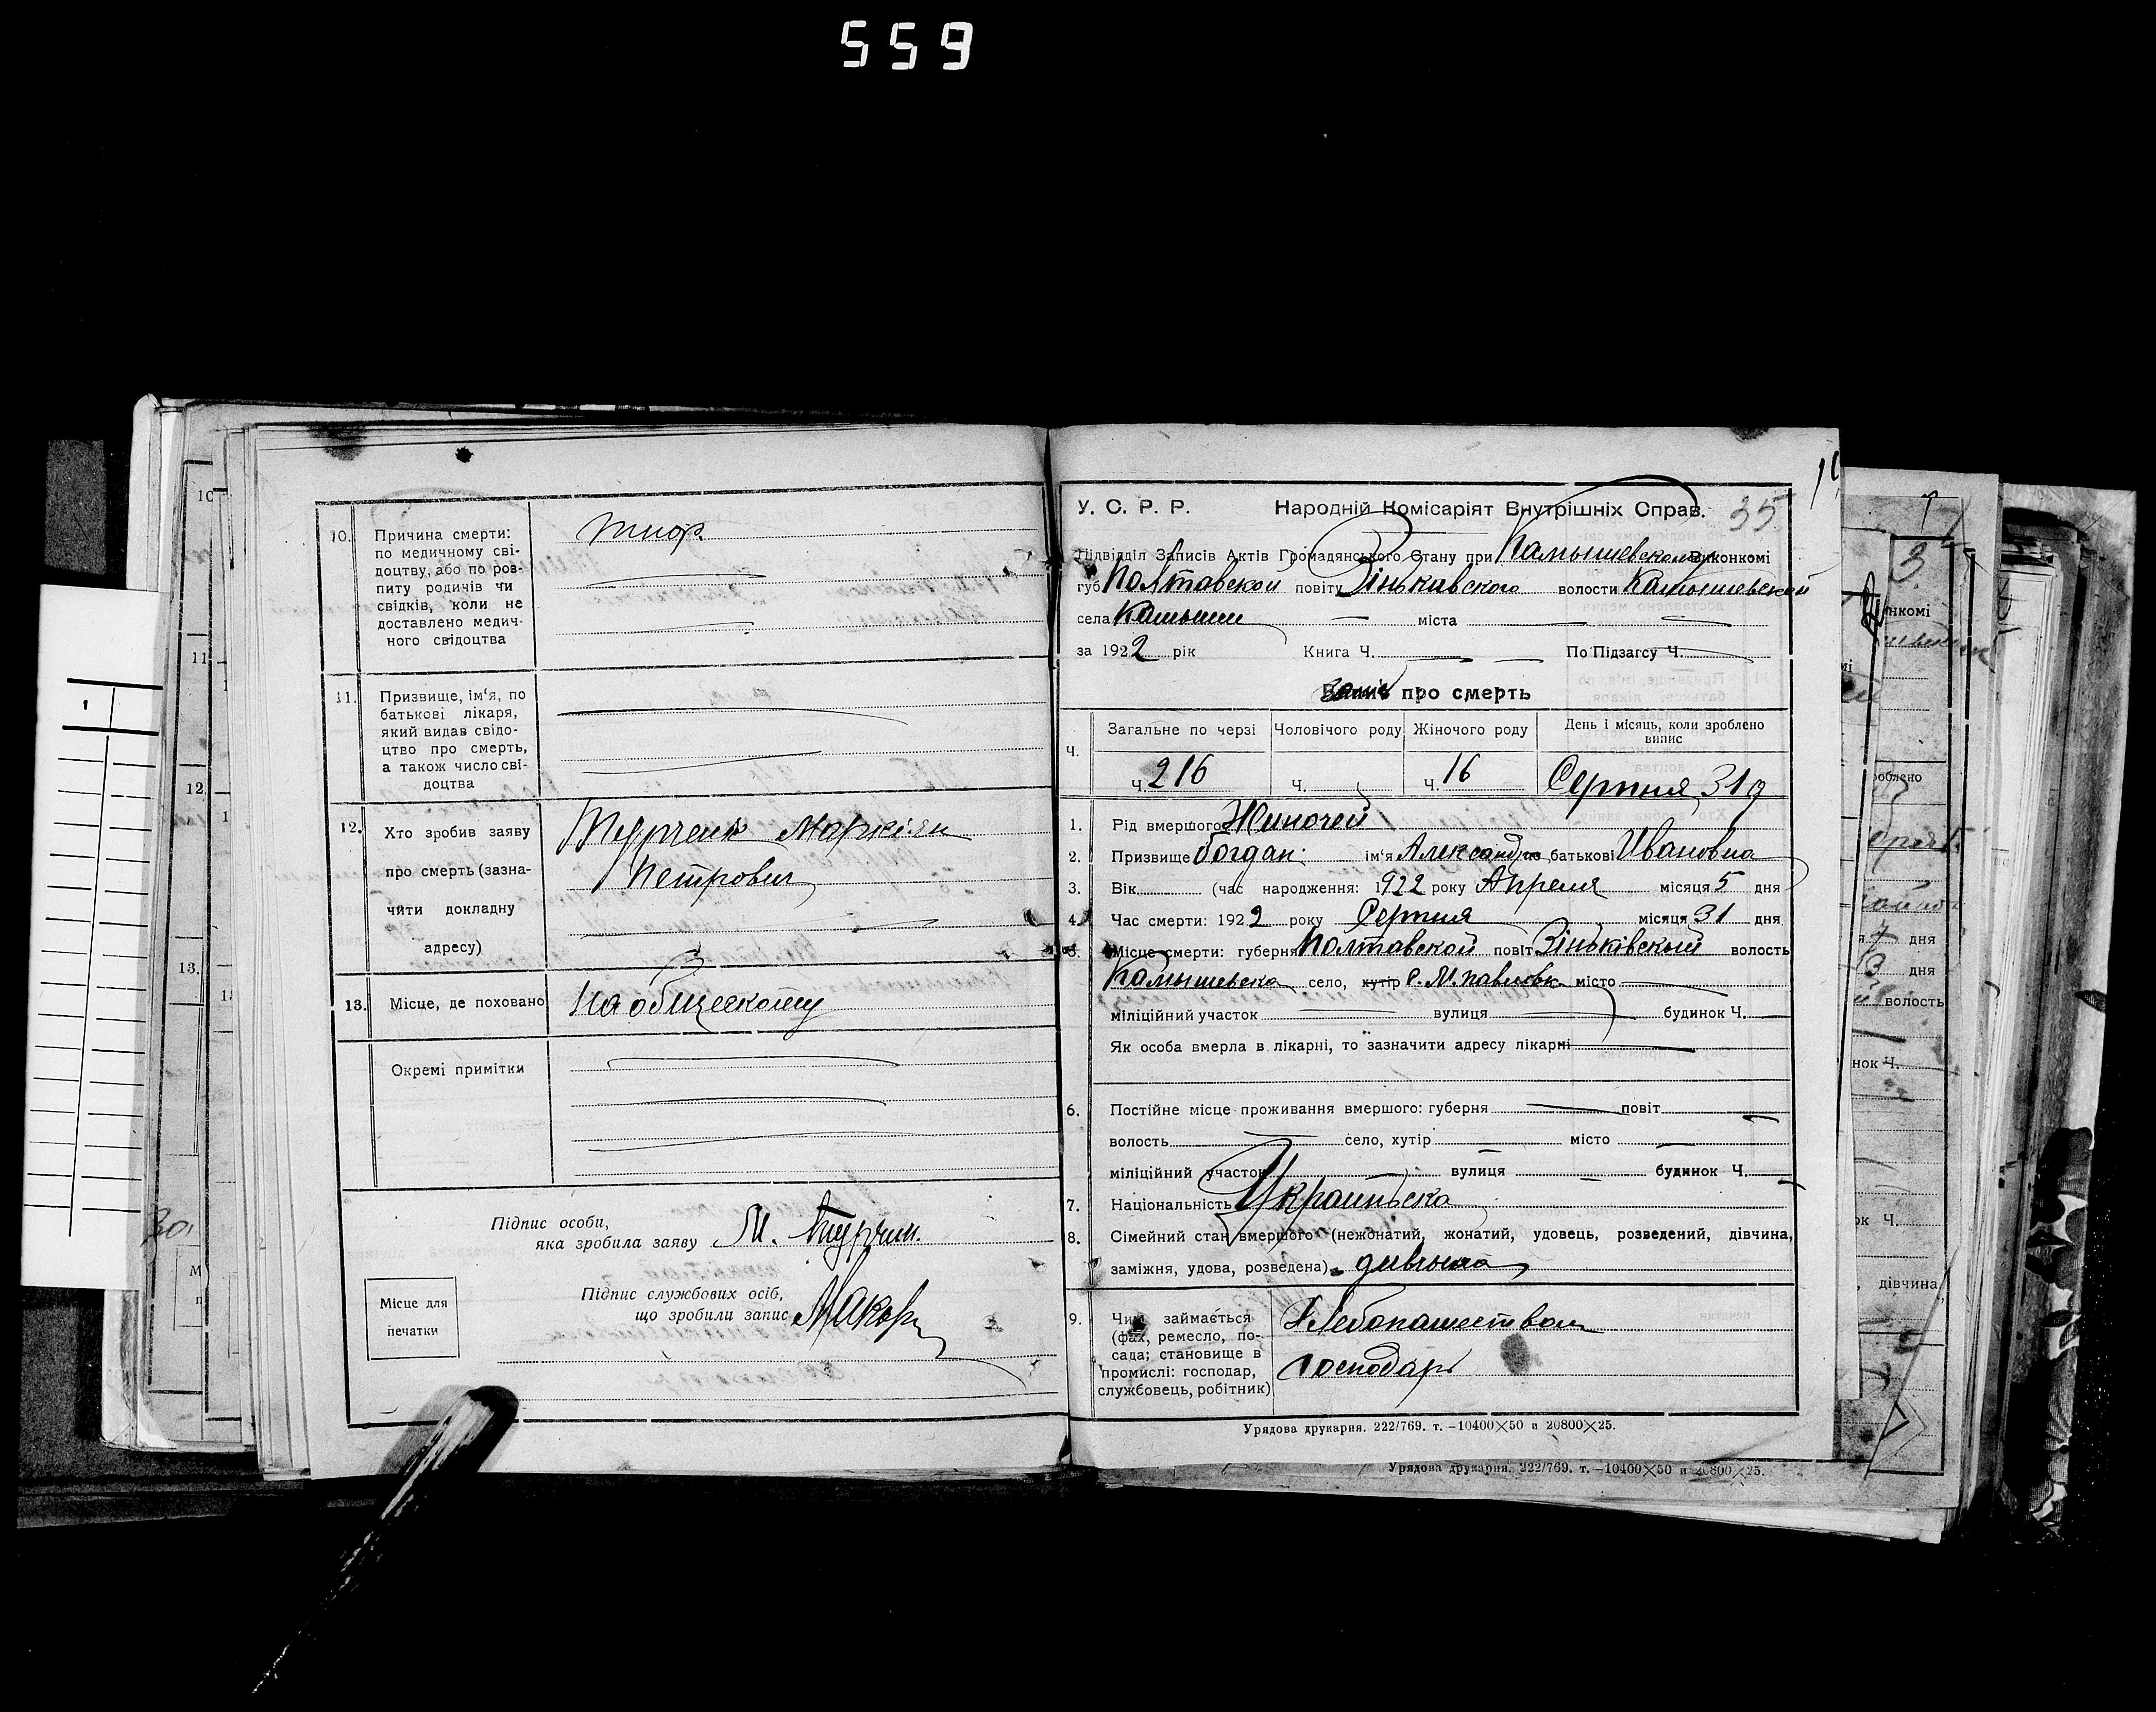 559
10.
Причина смерти:
по медичному сві-
доцтву, або по роз-
питу родичів чи
свідків, коли не
доставлено медич-
ного свідоцтва
тиф
11.
Призвище, ім'я, по
батькові лікаря,
який видав свідо-
цтво про смерть,
а також число сві-
доцтва
12.
Хто зробив заяву
про смерть (зазна-
чити докладну
адресу)
Маркіян
Петрович
13.
Місце, де поховано
На общеском
Окремі примітки
Підпис особи,
яка зробила заяву М. Турчин.
Підпис службових осіб,
що зробили запис
Місце для
печатки
У. С. Р. Р. Народній Комісаріят Внутрішніх Справ. 35
Підвідділ Записів Актів Громадянського Стану при Камышевском Виконкомі
губ Полтавской повіту Зіньковского волости Камышевской
села Камыши міста
за 1922 рік Книга Ч. По Підзагсу Ч.
Запис про смерть
Ч.
Загальне по черзі Чоловічого роду Жіночого роду День і місяць, коли зроблено
випис
Ч. 216 Ч. Ч. 16 Серпня 31 д
1. Рід вмершого Жиночей
2. Призвище Богдан ім'я Александра батькові Ивановна
3. Вік (час народження: 1922 року Апреля місяця 5 дня
4. Час смерти: 1922 року Серпня місяця 31 дня
5. Місце смерти: губерня Полтавской повіт Зіньківский волость
Камышевска село, хутір с. М. павловк місто
міліційний участок вулиця будинок Ч.
Як особа вмерла в лікарні, то зазначити адресу лікарні
6. Постійне місце проживання вмершого: губерня повіт
волость село, хутір місто
міліційний участок вулиця будинок Ч.
7. Національність Украиньска
8. Сімейний стан вмершого (нежонатий, жонатий, удовець, розведений, дівчина,
заміжня, удова, розведена) дивчина
9. Чим займається
(фах, ремесло, по-
сада; становище в
промислі: господар,
службовець, робітник)
Хлебопашеством
господарь
Урядова друкарня. 222/769. т. —10400×50 и 20800×25.
Урядова друкарня. 222/769. т. —10400×50 и 20800×25.